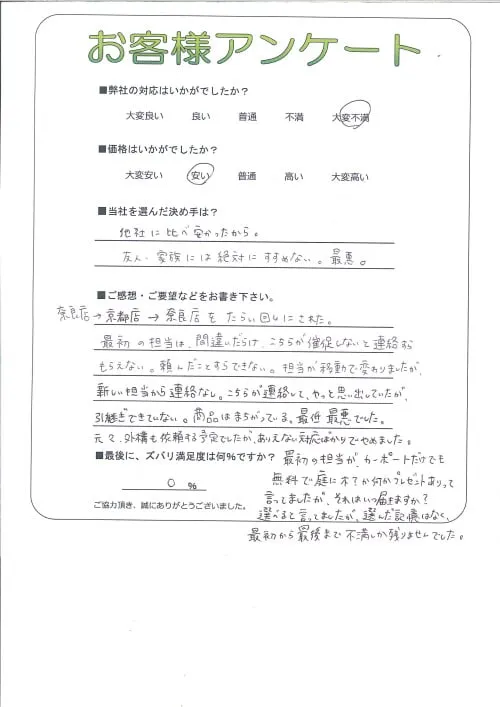 お客様アンケート
■弊社の対応はいかがでしたか？
大変良い 良い 普通 不満 大変不満
■価格はいかがでしたか？
大変安い 安い 普通 高い 大変高い
■当社を選んだ決め手は？
他社に比べ安かったから。
友人・家族には絶対にすすめない。最悪。
■ご感想・ご要望などをお書き下さい。
奈良店→京都店→奈良店をたらい回しにされた。
最初の担当は、間違いだらけ、こちらが催促しないと連絡すら
もらえない。頼んだことすらできない。担当が移動で変わりましたが、
新しい担当から連絡なし。こちらが連絡して、やっと思い出していたが、
引継ぎできていない。商品はまちがっている。最低最悪でした。
元々、外構も依頼する予定でしたが、ありえない対応ばかりでやめました。
■最後に、ズバリ満足度は何％ですか？
0 ％
ご協力頂き、誠にありがとうございました。
最初の担当が、カーポートだけでも
無料で庭に木？か何かプレゼントありって
言ってましたが、それはいつ届きますか？
選べると言ってましたが、選んだ記憶はなく、
最初から最後まで不満しか残りませんでした。